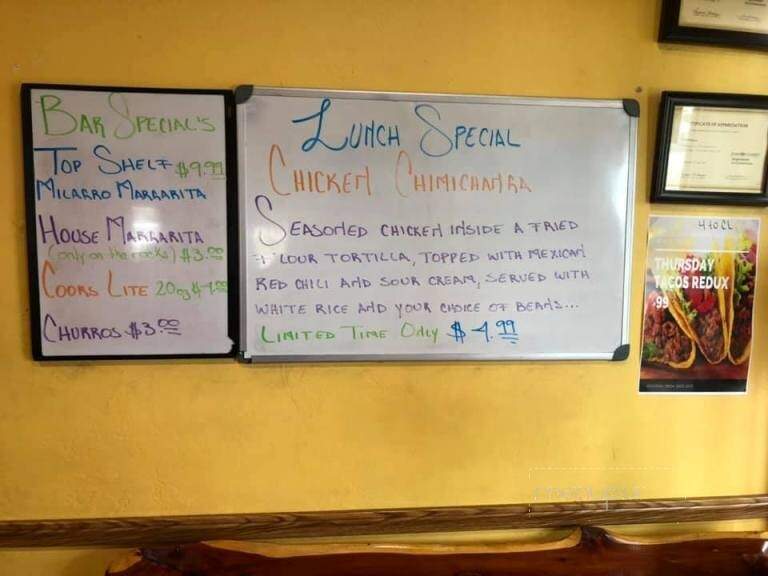 BAR SPECIAL'S
TOP SHELF $9.99
MILAGRO MARGARITA
HOUSE MARGARITA
(only on the rocks) $3.00
COORS LITE 20oz
CHURROS $3.00
LUNCH SPECIAL
CHICKEN CHIMICHANGA
SEASONED CHICKEN INSIDE A FRIED
FLOUR TORTILLA, TOPPED WITH MEXICAN
RED CHILI AND SOUR CREAM, SERVED WITH
WHITE RICE AND YOUR CHOICE OF BEANS...
LIMITED TIME ONLY $4.99
CERTIFICATE OF APPRECIATION
4 to CL
THURSDAY
TACOS REDUX
.99